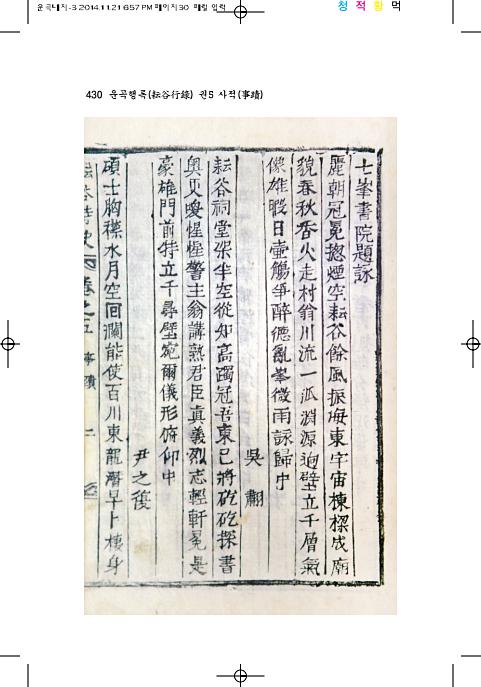 2014.11.21 6:57 PM 페이지30
청 적 황 먹
430 운곡행록(耘谷行錄) 권5 사적(事蹟)
七峯書院題詠
麗朝冠冕摠煙空耘谷餘風振海東宇宙棟樑成廟
貌春秋香火走村翁川流一派淵源逈壁立千層氣
像雄暇日壺觴爭醉德亂峯微雨詠歸中
吳䎘
耘谷祠堂架半空從知高躅冠吾東已將矻矻探書
奧更愛惺惺警主翁講熟君臣眞義烈志輕軒冕是
豪雄門前特立千尋壁宛爾儀形俯仰中
尹之復
碩士胸襟水月空回瀾能使百川東龍潛早卜棲身
耘谷詩史 卷之五 事蹟 二